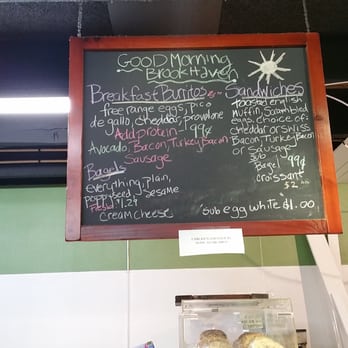 Good Morning
BrookHaven
Breakfast Burritos
free range eggs, Pico
de gallo, cheddar, provolone
Add protein - 99¢
Avocado, Bacon, Turkey Bacon
Sausage
Bagels
everything, plain,
poppyseed, sesame
$1.29
cream cheese
Sandwiches
toasted english
muffin, Scrambled
eggs, choice of:
cheddar or swiss
Bacon, Turkey Bacon
or Sausage
Sub
Bagel 99¢
croissant
$2
sub egg white $1.00